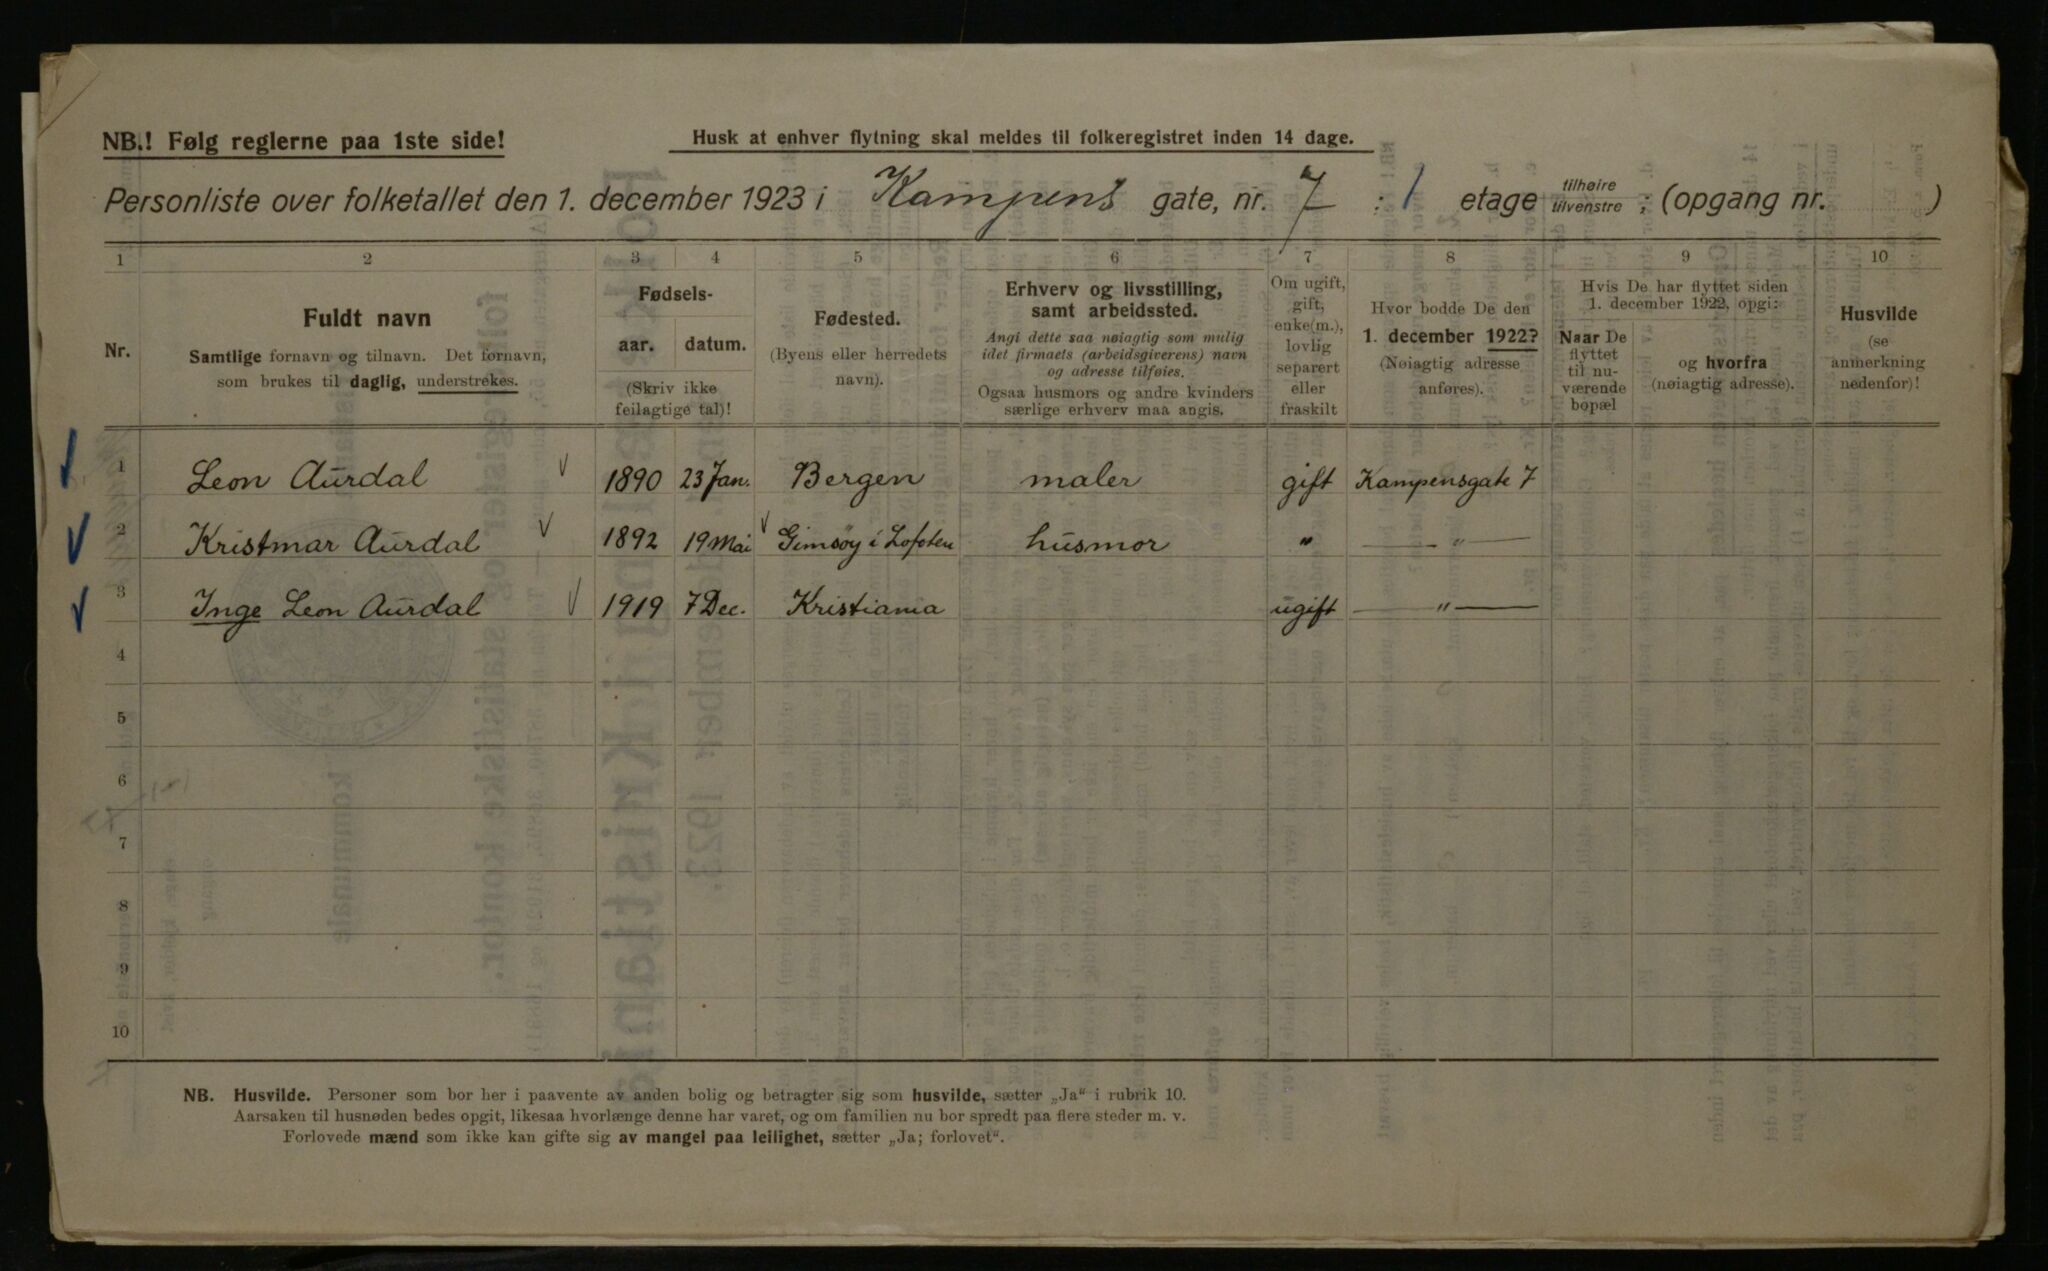 NB.! Følg reglerne paa 1ste side!
Husk at enhver flytning skal meldes til folkeregistret inden 14 dage.
Personliste over folketallet den 1. december 1923 i Kampens gate, nr. 7 : 1 etage tilhøire tilvenstre ; (opgang nr. )
1 2 3 4 5 6 7 8 9 10
Nr.
Fuldt navn
Samtlige fornavn og tilnavn. Det fornavn,
som brukes til daglig, understrekes.
Fødsels-
aar. datum.
(Skriv ikke
feilagtige tal)!
Fødested.
(Byens eller herredets
navn).
Erhverv og livsstilling,
samt arbeidssted.
Angi dette saa nøiagtig som mulig
idet firmaets (arbeidsgiverens) navn
og adresse tilføies.
Ogsaa husmors og andre kvinders
særlige erhverv maa angis.
Om ugift,
gift,
enke(m.),
lovlig
separert
eller
fraskilt
Hvor bodde De den
1. december 1922?
(Nøiagtig adresse
anføres).
Hvis De har flyttet siden
1. december 1922, opgi:
Naar De
flyttet
til nu-
værende
bopæl
og hvorfra
(nøiagtig adresse).
Husvilde
(se
anmerkning
nedenfor)!
1 Leon Aurdal 1890 23 Jan. Bergen maler gift Kampensgate 7
2 Kristmar Aurdal 1892 19 Mai Gimsøy i Lofoten husmor " — " —
3 Inge Leon Aurdal 1919 7 Dec. Kristiania ugift — " —
4
5
6
7
8
9
10
NB. Husvilde. Personer som bor her i paavente av anden bolig og betragter sig som husvilde, sætter „Ja“ i rubrik 10.
Aarsaken til husnøden bedes opgit, likesaa hvorlænge denne har varet, og om familien nu bor spredt paa flere steder m. v.
Forlovede mænd som ikke kan gifte sig av mangel paa leilighet, sætter „Ja; forlovet“.